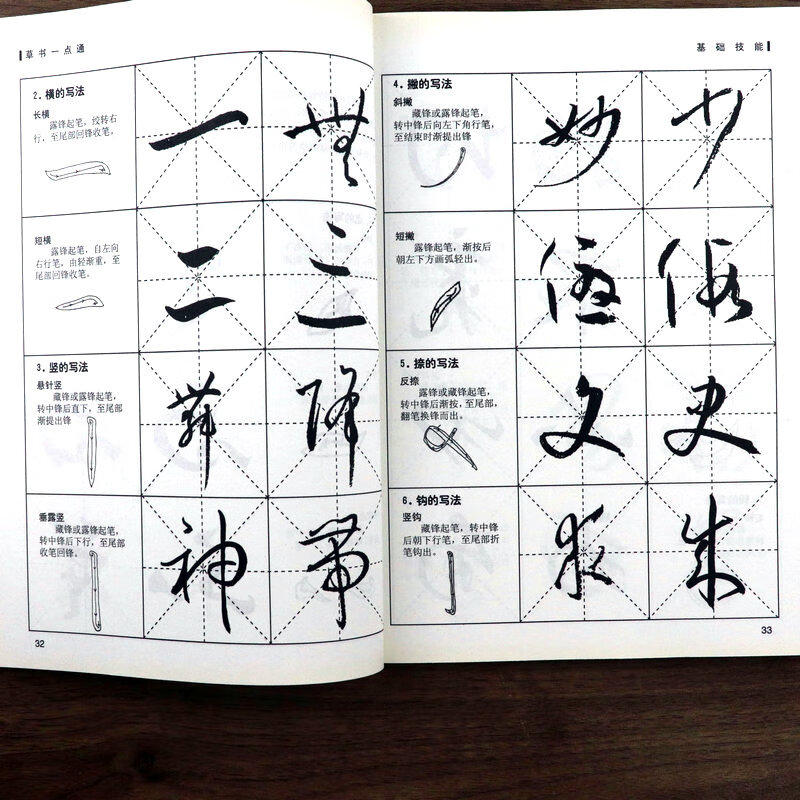 草书一点通
2.横的写法
长横
露锋起笔,绞转右
行,至尾部回锋收笔,
一 無
短横
露锋起笔,自左向
右行笔,由轻渐重,至
尾部回锋收笔。
二 三
3.竖的写法
悬针竖
藏锋或露锋起笔,
转中锋后直下,至尾部
渐提出锋
降
垂露竖
藏锋或露锋起笔,
转中锋后下行,至尾部
收笔回锋。
神 帶
32
基础技能
4.撇的写法
斜撇
藏锋或露锋起笔,
转中锋后向左下角行笔,
至结束时渐提出锋
妙 少
短撇
露锋起笔,渐按后
朝左下方画弧轻出。
假
5.捺的写法
反捺
露锋或藏锋起笔,
转中锋后渐按,至尾部,
翻笔换锋而出。
文
6.钩的写法
竖钩
藏锋起笔,转中锋
后朝下行笔,至尾部折
笔钩出。
求
33